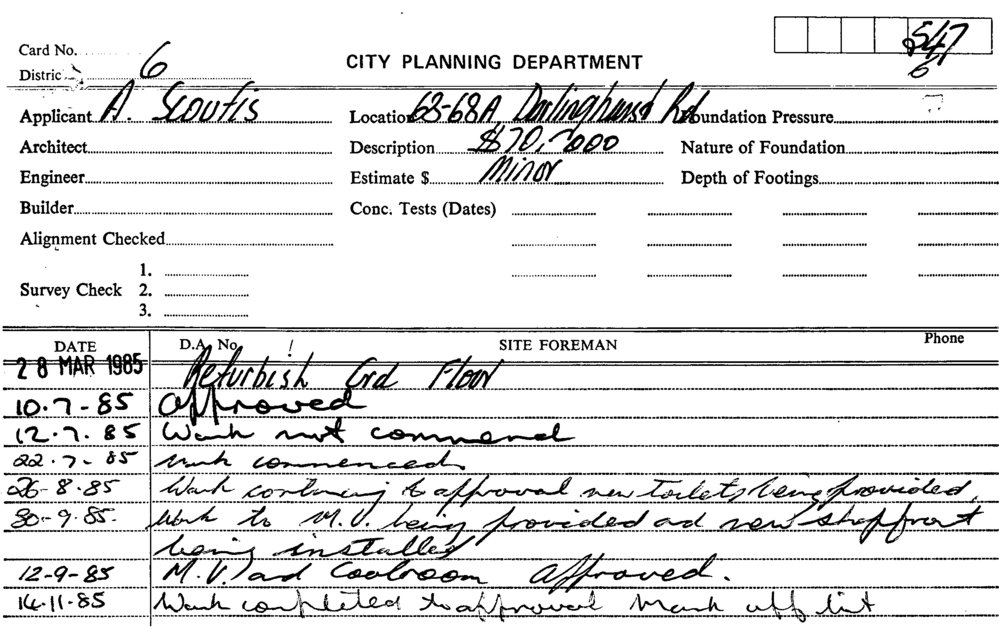 Card No.
District 6
CITY PLANNING DEPARTMENT
547
6
Applicant A. Scoufis
Location 63-68A Darlinghurst Rd
Foundation Pressure
Architect
Description $70,000
Nature of Foundation
Engineer
Estimate $ Minor
Depth of Footings
Builder
Conc. Tests (Dates)
Alignment Checked
1.
Survey Check 2.
3.
DATE D.A. No. SITE FOREMAN Phone
28 MAR 1985 Refurbish Grd Floor
10.7-85 Approved
12.7.85 Work not commenced
22.7-85 Work commenced.
26-8-85 Work continuing to approval new toilets being provided.
30-9-85. Work to M.V. being provided ad new shopfront
being installed
12-9-85 M.V. ad Coolroom approved.
14.11.85 Work completed to approval Mark off list